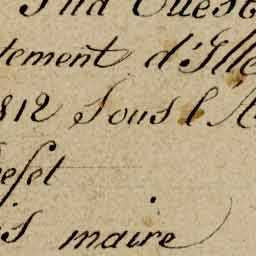 Sud Ouest
tement d'Ille
1812 Sous l'A
refet
is maire